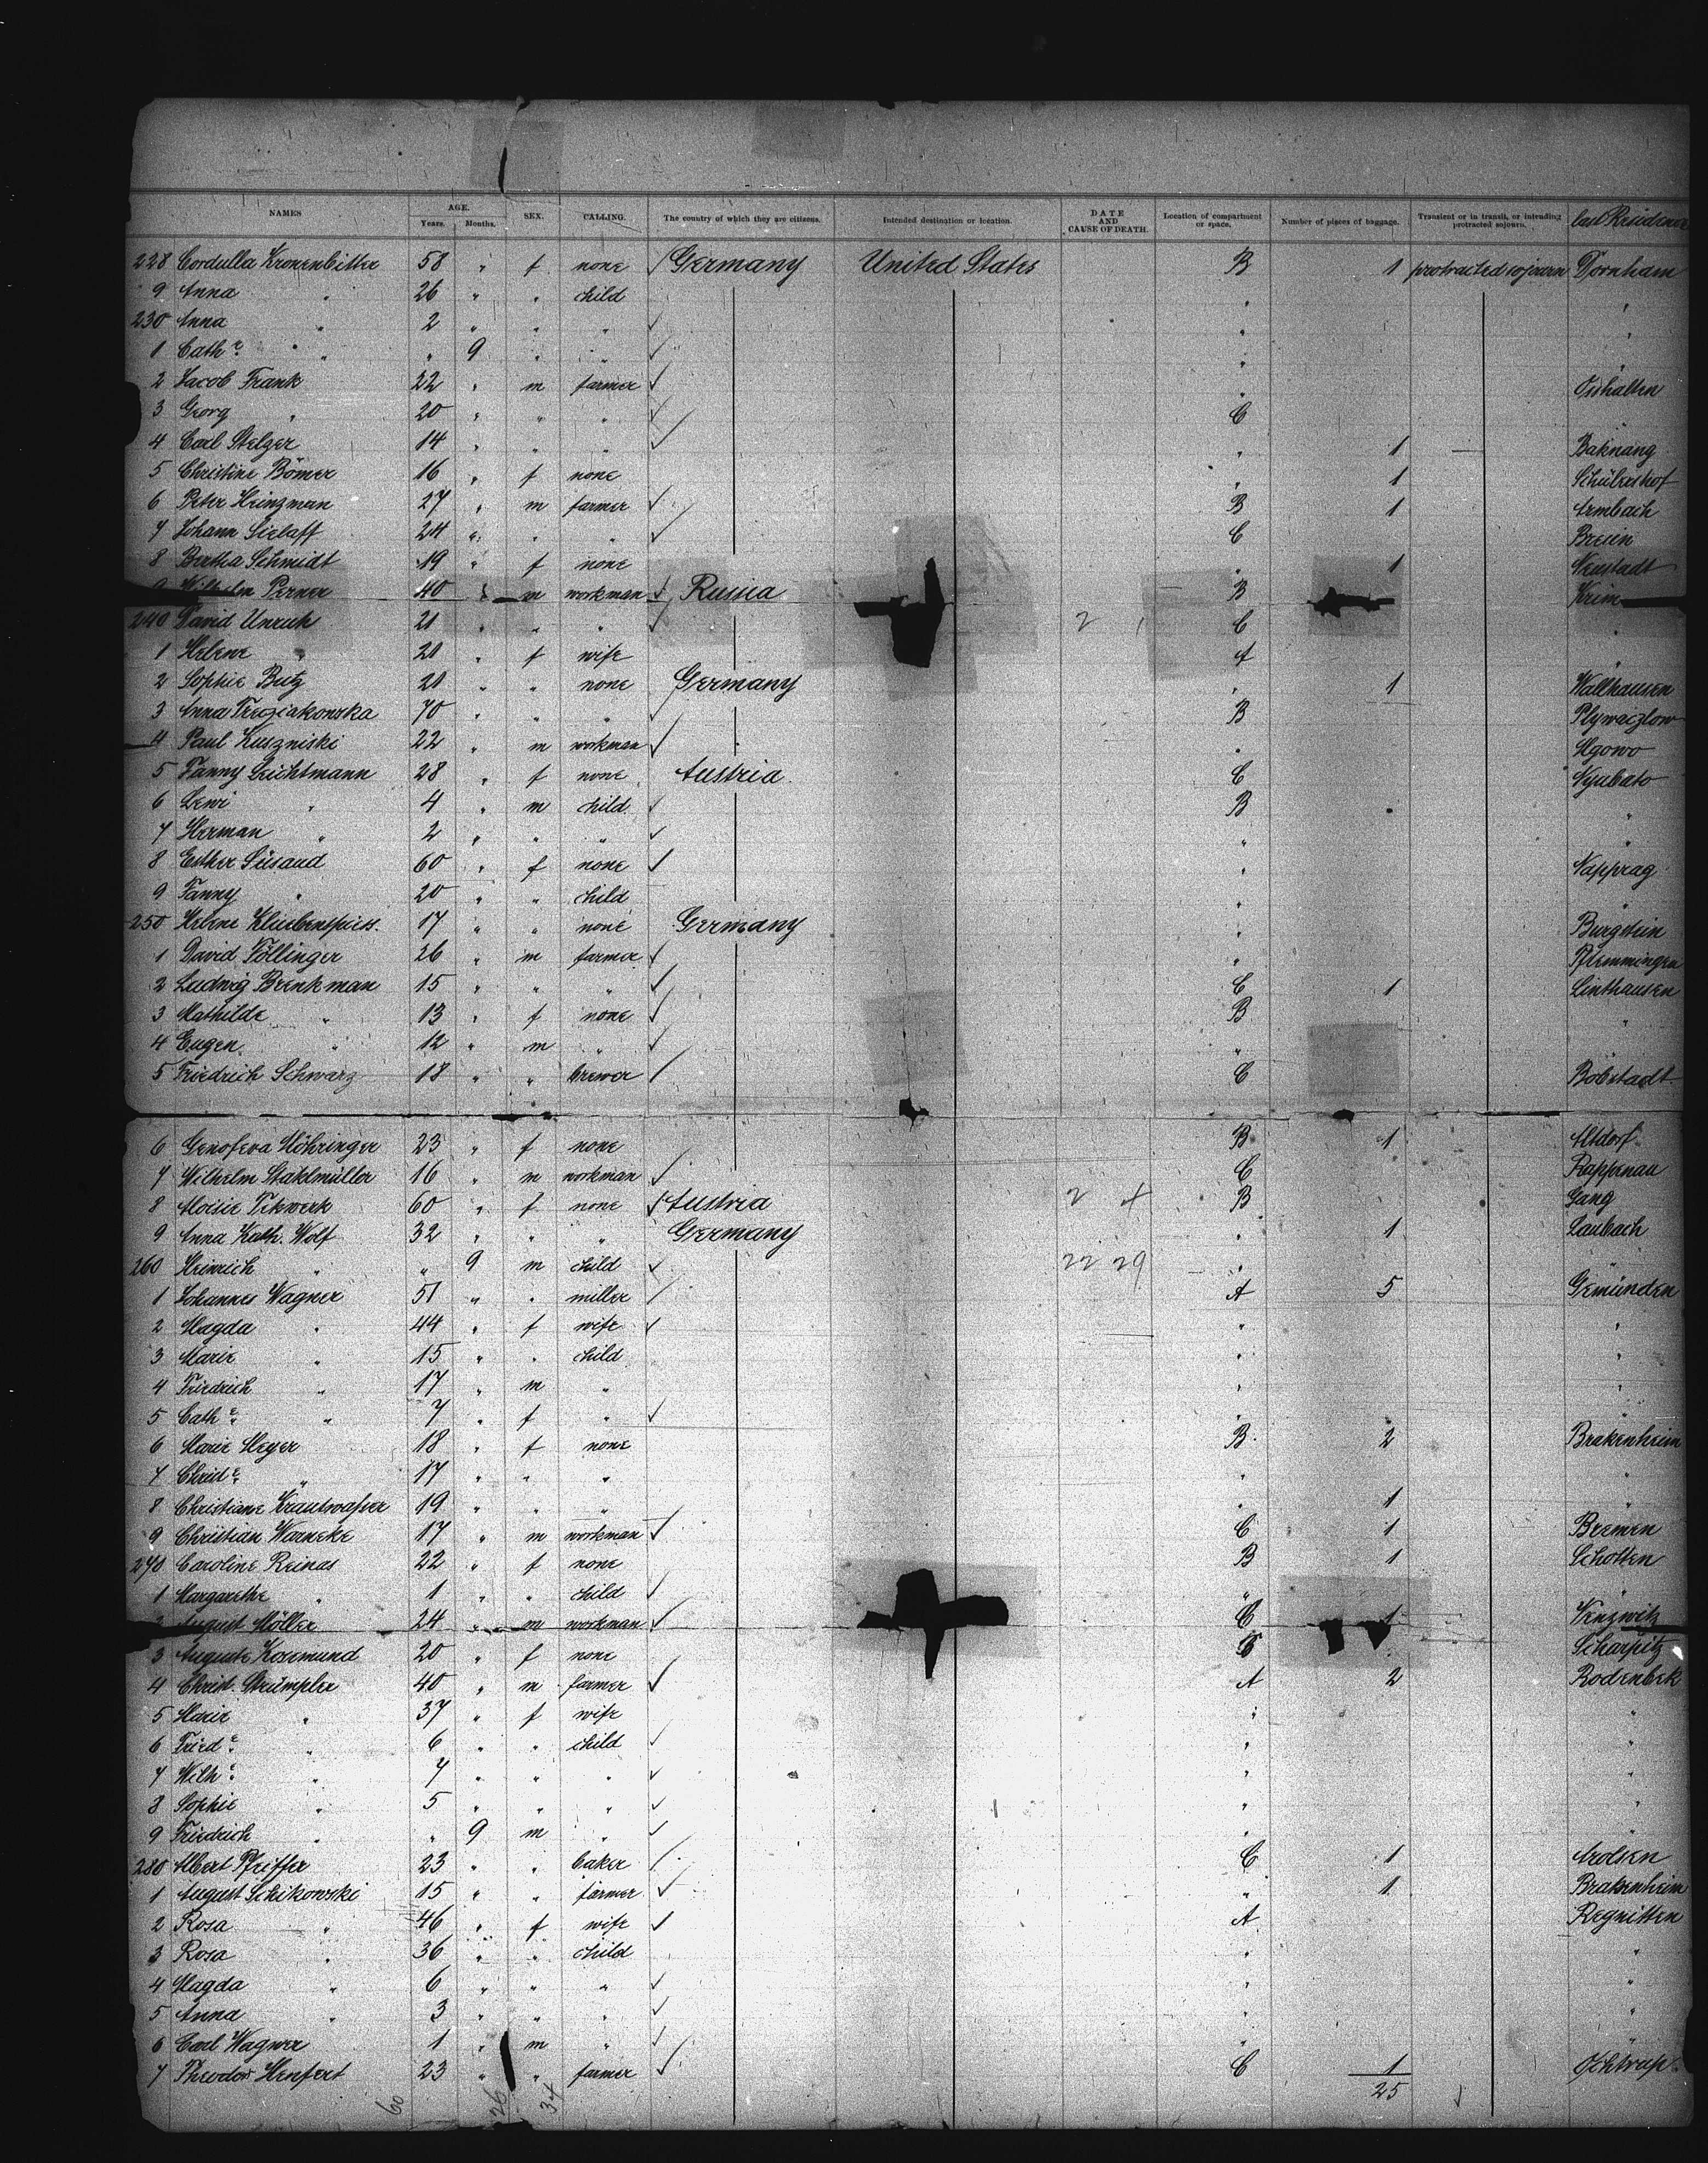 NAMES AGE. Years. Months. SEX. CALLING. The country of which they are citizens. Intended destination or location. DATE AND CAUSE OF DEATH. Location of compartment or space. Number of pieces of baggage. Transient or in transit, or intending protracted sojourn. last Residence
228 Cordulla Kronenbitter 58 " f none Germany United States B 1 protracted sojourn Dornham
9 Anna " 26 " " child " "
230 Anna " 2 " " " " "
1 Cathe " " 9 " " " "
2 Jacob Frank 22 " m farmer "
3 Georg " 20 " " " C
4 Carl Stelzer 14 " " " " 1 Baknang
5 Christine Bömer 16 " f none " 1
6 Peter Heinzman 27 " m farmer B 1 Armbach
7 Johann Sielaff 24 " " " C
8 Bertha Schmidt 19 " f none " 1 Neustadt
9 Wilhelm Perner 40 " m workman Russia B Krim
240 David Unruh 21 " " " 2 C "
1 Helene " 20 " f wife A "
2 Sophie Butz 20 " " none Germany " 1 Wallhausen
3 Anna 70 " " " B
4 Paul 22 " m workman "
5 Fanny 28 " f none Austria C
6 Lewi " 4 " m child B "
7 Herman " 2 " " " " "
8 Esther 60 " f none "
9 Fanny " 20 " " child " "
250 Helene 17 " " none Germany " Burgstein
1 David Föllinger 26 " m farmer "
2 Ludwig Brenkman 15 " " " C 1 Linthausen
3 Mathilde " 13 " f none B "
4 Eugen " 12 " m " "
5 Friedrich Schwarz 18 " " brewer C Bobstadt
6 Genofeva Möhringer 23 " f none B 1 Altdorf
7 Wilhelm Staklmüller 16 " m workman C Rappenau
8 Aloisie 60 " f none Austria 2 4 B Gang
9 Anna Kath. Wolf 32 " " " Germany " 1 Laubach
260 Heinrich " " 9 m child 22 29 " "
1 Johannes Wagner 51 " " miller A 5 Gemünden
2 Magda " 44 " f wife " "
3 Marie " 15 " " child " "
4 Friedrich " 17 " m " " "
5 Cathe " 7 " f " " "
6 Marie Meyer 18 " f none B 2 Brakenheim
7 Christe " 17 " " " " "
8 Christiane Krautwasser 19 " " " " 1 "
9 Christian Warneke 17 " m workman C 1 Bremen
270 Caroline Reinas 22 " f none B 1 Schotten
1 Margarethe " 1 " " child " "
2 August Möller 24 " m workman C 1 Venzwitz
3 Auguste Rosemund 20 " f none Scharpitz
4 Christ. Strümpler 40 " m farmer A 2 Rodenbek
5 Marie " 37 " f wife " "
6 Friede " 6 " " child " "
7 Wilhe " 7 " " " " "
8 Sophie " 5 " " " " "
9 Friedrich " " 9 m " " "
280 Albert Pfeiffer 23 " " baker C 1 Arolsen
1 August Schikowski 15 " " farmer " 1 Brakenheim
2 Rosa " 46 " f wife A Regnitten
3 Rosa " 36 " " child " "
4 Magda " 6 " " " " "
5 Anna " 3 " " " " "
6 Carl Wagner 1 " m " "
7 Theodor Henfert 23 " " farmer C 1 Ochtrup
25
60 26 34